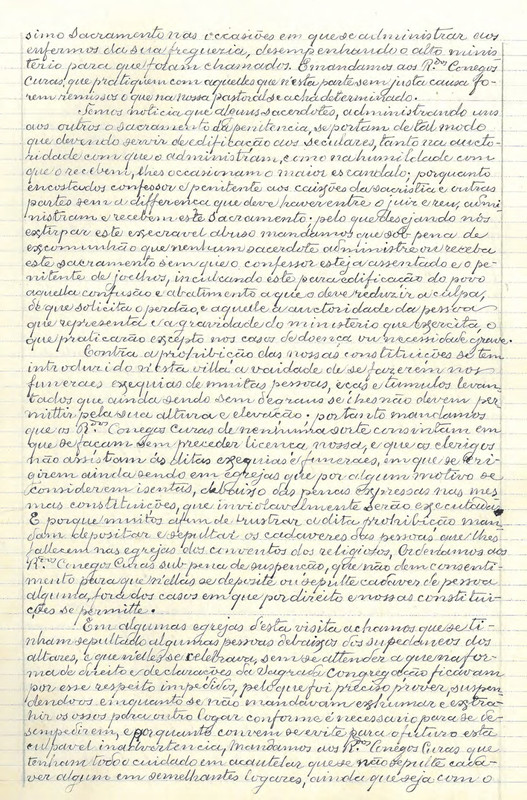 simo Sacramento nas occasiões em que se administrar aos
enfermos da sua freguezia, desempenhando o alto minis-
terio para que foram chamados. E mandamos aos R.dos Conegos
Curas, que pratiquem com aquelles que n'esta parte sem justa causa fo-
rem remissos o que na nossa pastoral se acha determinado.
Temos noticia que alguns sacerdotes, administrando uns
aos outros o sacramento da penitencia, se portam de tal modo
que devendo servir de edificação aos seculares, tanto na aucto-
ridade com que o administram, como na humildade com
que o recebem, lhes occasionam o maior escandalo; porquanto
encostados confessor e penitente aos caixões da sacristia e outras
partes sem a differença que deve haver entre o juiz e reu, admi-
nistram e recebem este Sacramento: pelo que desejando nós
extirpar este execravel abuso mandamos que sob pena de
excomunhão que nenhum sacerdote administre ou receba
este sacramento sem que o confessor esteja assentado e o pe-
nitente de joelhos, inculcando este para edificação do povo
aquella confusão e abatimento a que o deve reduzir a culpa,
de que solicita o perdão, e aquelle a auctoridade da pessoa
que representa e a gravidade do ministerio que exercita, o
que praticarão excepto nos casos de doença ou necessidade grave.
Contra a prohibição das nossas constituições se tem
introduzido n'esta villa a vaidade de se fazerem nos
funeraes exequias de muitas pessoas, eças e tumulos levan-
tados que ainda sendo sem degraus se lhes não devem per-
mittir pela sua altura e elevação: portanto mandamos
que os R.dos Conegos Curas de nenhuma sorte consintam em
que se façam sem preceder licença nossa, e que os clerigos
não assistam ás ditas exequias e funeraes, em que se eri-
girem ainda sendo em egrejas que por algum motivo se
considerem isentas, debaixo das penas expressas nas mes-
mas constituições, que inviolavelmente serão executadas.
E porque muitos afim de frustrar a dita prohibição man-
dam depositar e sepultar os cadaveres das pessoas que lhes
fallecem nas egrejas dos conventos dos religiosos, Ordenamos aos
R.dos Conegos Curas sub pena de suspenção, que não dem consenti-
mento para que n'ellas se deposite ou sepulte cadaver de pessoa
alguma, fora dos casos em que por direito e nossas constitui-
ções se permitte.
Em algumas egrejas d'esta visita achamos que se ti-
nham sepultado algumas pessoas debaixo dos supedaneos dos
altares, e que n'elles se celebrava, sem se attender a que na for-
ma de direito e declarações da Sagrada Congregação ficavam
por esse respeito impedidos, pelo que foi preciso prover, suspen-
dendo-os emquanto se não mandavam exhumar e extra-
hir os ossos para outro logar conforme é necessario para se de-
simpedirem, e porquanto convem se evite para o futuro esta
culpavel inadvertencia, Mandamos aos R.dos Conegos Curas que
tenham todo o cuidado em acautelar que se não sepulte cada-
ver algum em semelhantes logares, ainda que seja com o